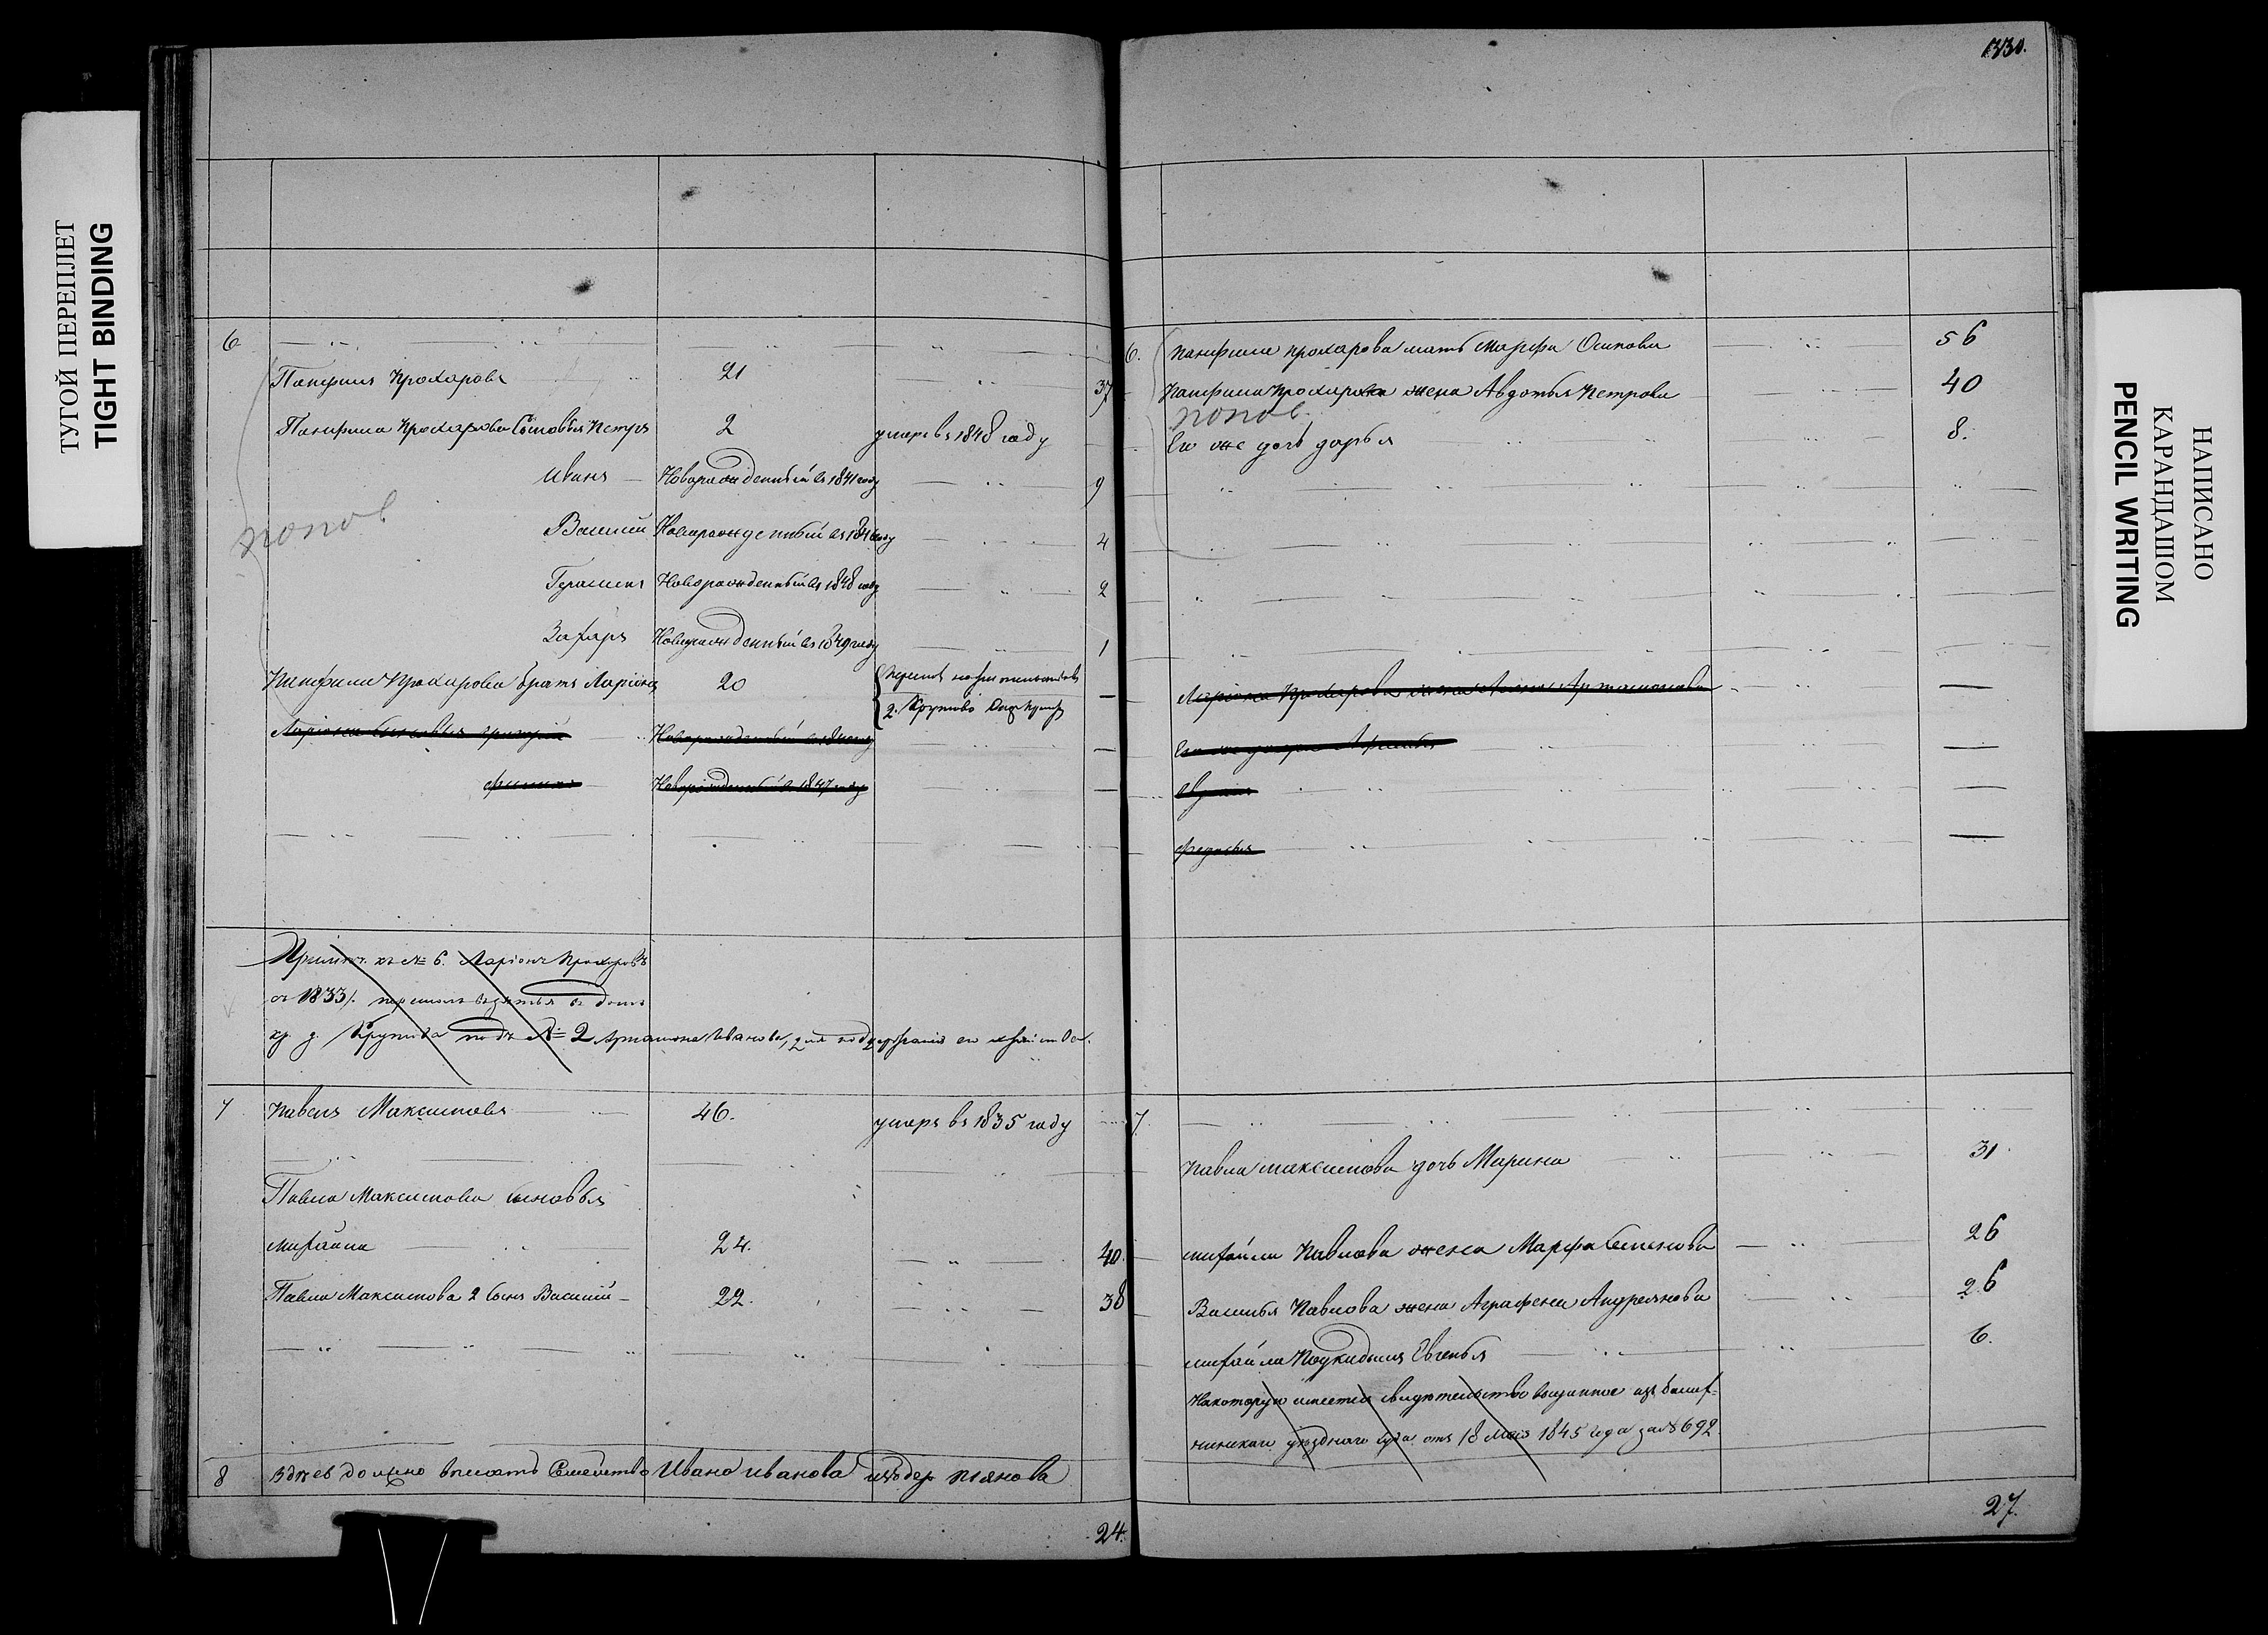 ТУГОЙ ПЕРЕПЛЕТ
TIGHT BINDING
6
Панфилъ Прохаровъ 21 37
Панфила Прохарова Сыновья Петръ 2 умеръ въ 1848 году
Иванъ Новорожденный въ 1841 году 9
Василий Новорожденный въ 1846 году 4
попов
Герасимъ Новорожденный въ 1848 году 2
Захаръ Новорожденный въ 1849 году 1
Панфила Прохарова братъ Ларiонъ 20
Ларiона сыновья Григорiй Новорожденный
Новорожденный въ 1847 году
Примѣч. къ № 6. Ларiонъ Прохоровъ
съ 1833 г. въ домъ
кр. д. подъ № 2 Артамона Иванова, для его
7 Павелъ Максимовъ 46. умеръ въ 1835 году
Павла Максимова сыновья
Михайла 24. 40.
Павла Максимова 2 сынъ Василий 22. 38
8 Здѣсь должно вписать Семейство Ивана Иванова изъ дер
24.
1330.
6. Панфила Прохарова мать Марфа Осипова 56
Панфила Прохарова жена Авдотья Петрова 40
попов.
Его же дочь дарья 8.
Ларiона Прохарова жена Артамонова
Его же дочери
Федосья
7.
Павла Максимова дочь Марина 31.
Михайли Павлова жена Марфа Семенова 26
Василья Павлова жена Аграфена Андреянова 26
Михайла Подкидыш Евгенья 6.
На которую имеется свидѣтельство выданное изъ
уѣзднаго суда отъ 18 мая 1845 года за № 692
27.
НАПИСАНО
КАРАНДАШОМ
PENCIL WRITING